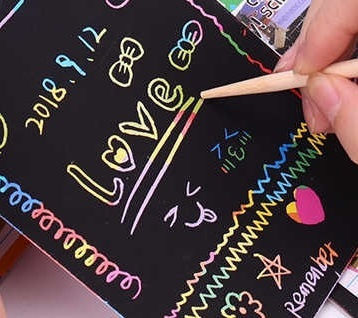 2018.9.12
Love
Remember